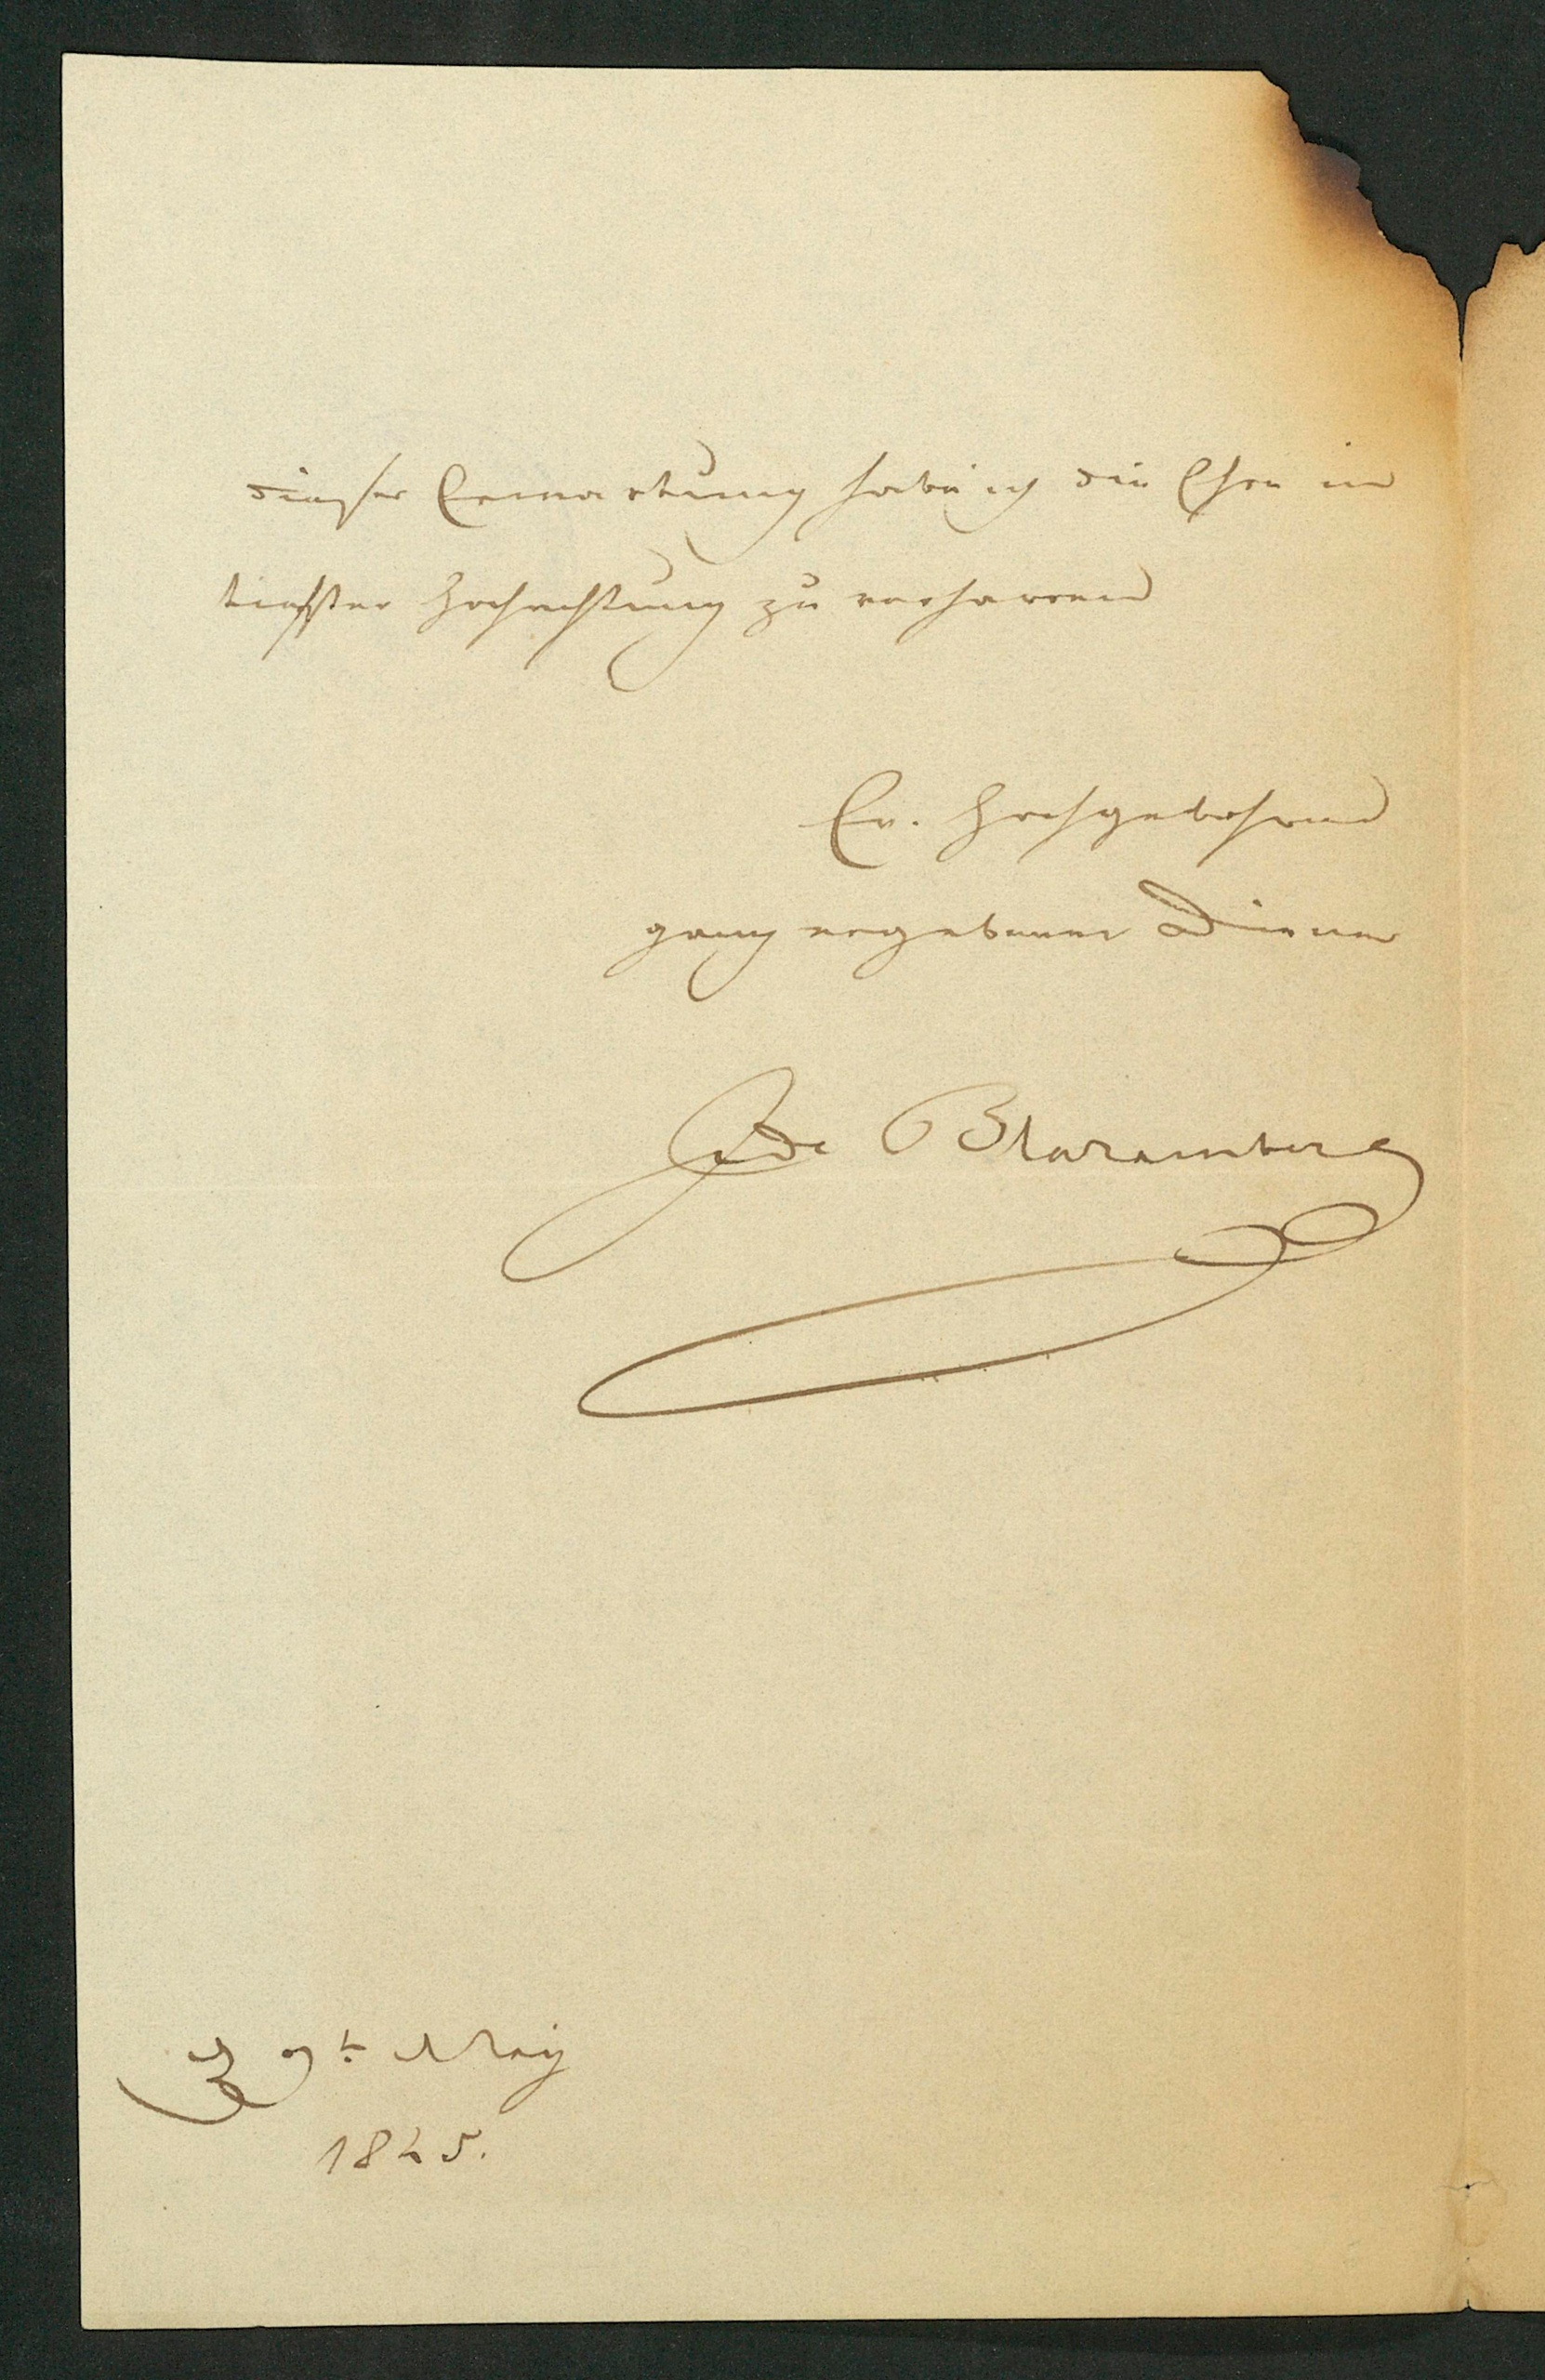 dieser Erwartung habe ich die Ehre in
tiefster Hochachtung zu verharren
Ew. Hochgebohren
ganz ergebener Diener
J de Blaramberg
9t May
1845.